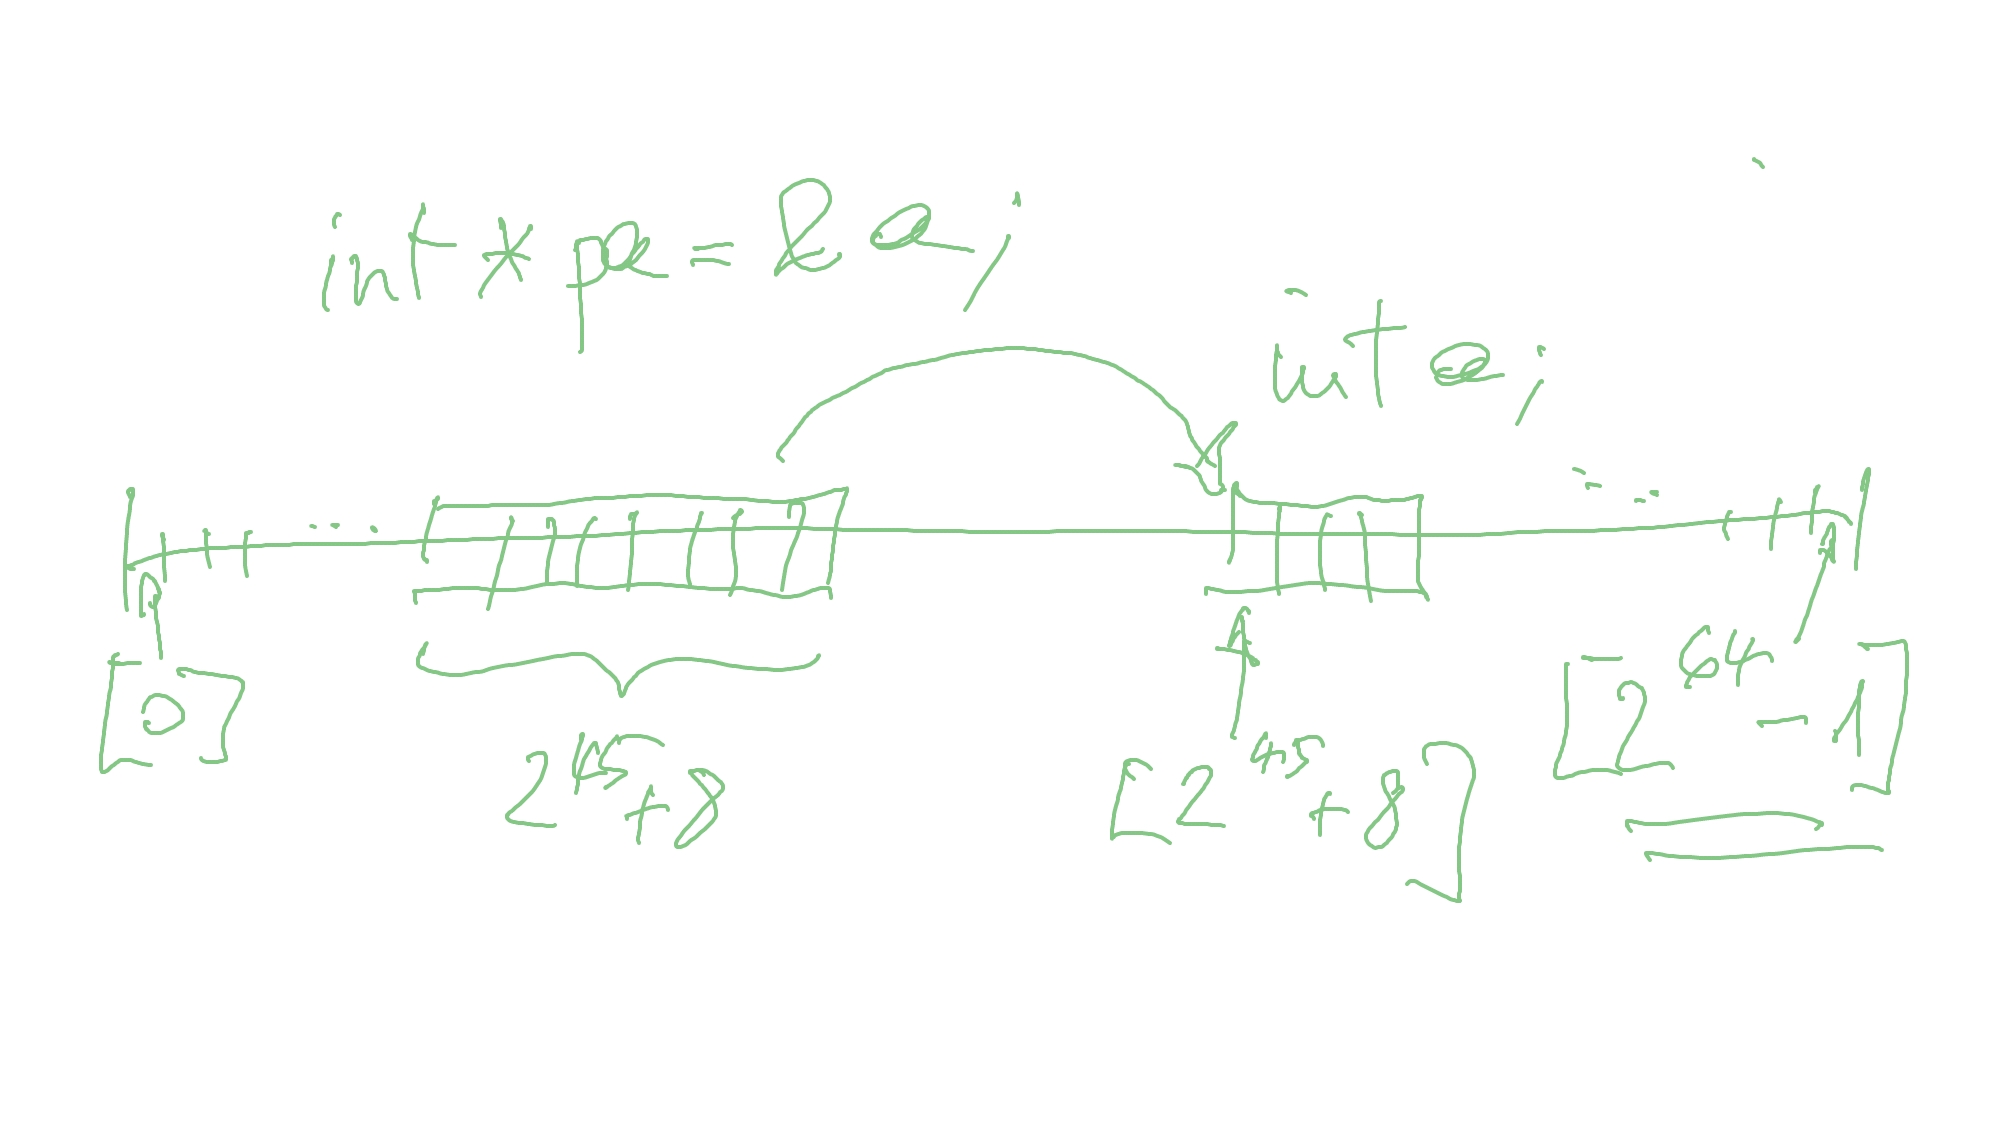 int *pa = &a;
int a;
[0]
2^45+8
[2^45+8]
[2^64-1]